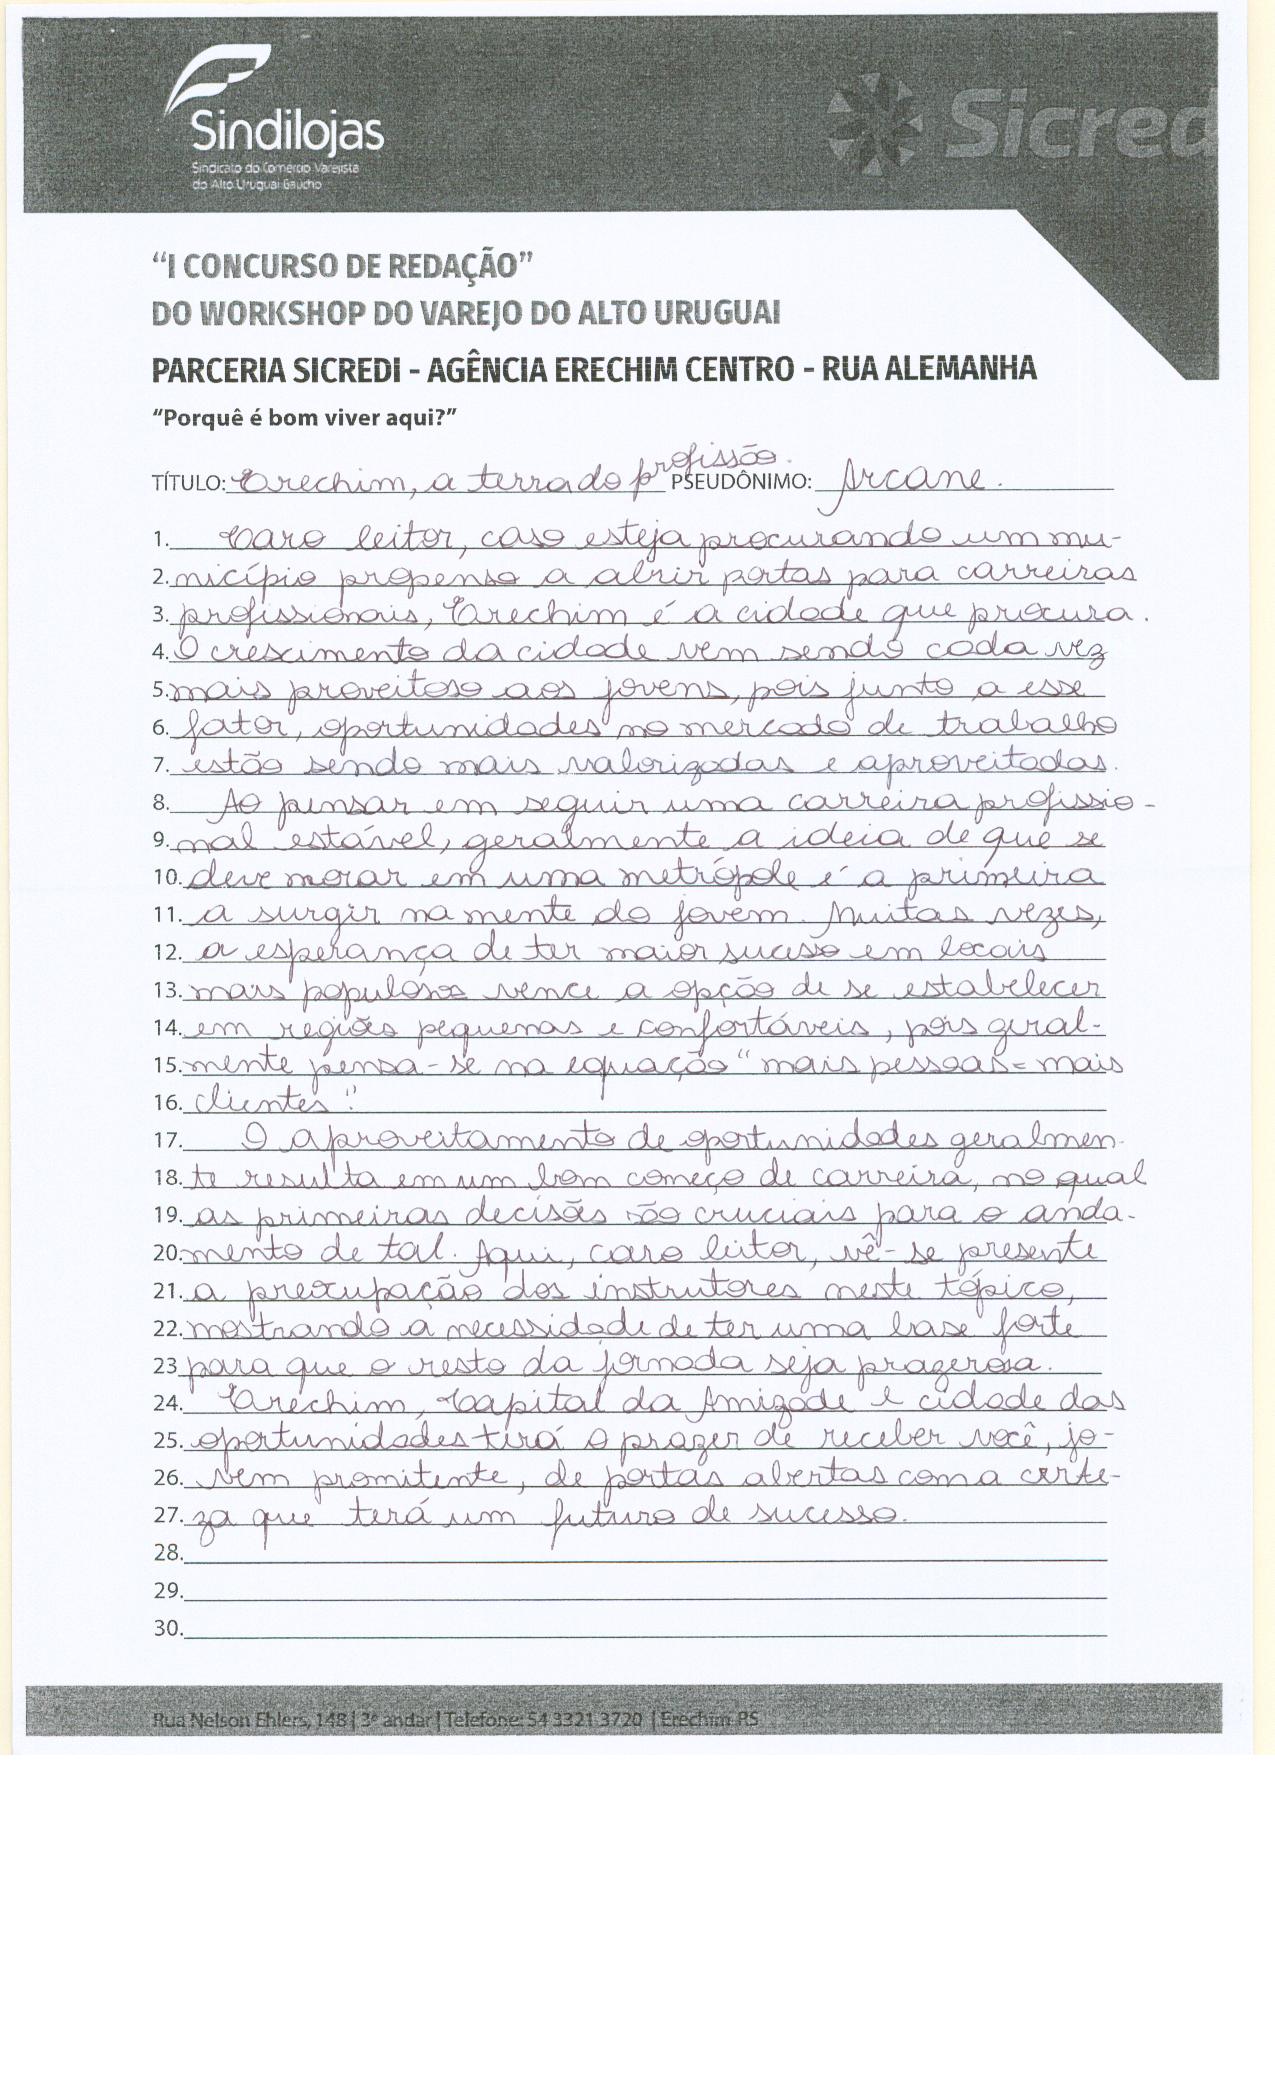 Sindilojas
Sindicato do Comercio Varejista
do Alto Uruguai Gaúcho
Sicred
“I CONCURSO DE REDAÇÃO”
DO WORKSHOP DO VAREJO DO ALTO URUGUAI
PARCERIA SICREDI - AGÊNCIA ERECHIM CENTRO - RUA ALEMANHA
“Porquê é bom viver aqui?”
TÍTULO: Erechim, a terra do profissão. PSEUDÔNIMO: Arcane.
1. Caro leitor, caso esteja procurando um mu-
2. nicípio propenso a abrir portas para carreiras
3. profissionais, Erechim é a cidade que procura.
4. O crescimento da cidade vem sendo cada vez
5. mais proveitoso aos jovens, pois junto a esse
6. fator, oportunidades no mercado de trabalho
7. estão sendo mais valorizadas e aproveitadas.
8. Ao pensar em seguir uma carreira profissio-
9. nal estável, geralmente a ideia de que se
10. deve morar em uma metrópole é a primeira
11. a surgir na mente do jovem. Muitas vezes,
12. a esperança de ter maior sucesso em locais
13. mais populosos vence a opção de se estabelecer
14. em regiões pequenas e confortáveis, pois geral-
15. mente pensa-se na equação “mais pessoas = mais
16. clientes”.
17. O aproveitamento de oportunidades geralmen-
18. te resulta em um bom começo de carreira, no qual
19. as primeiras decisões são cruciais para o anda-
20. mento de tal. Aqui, caro leitor, vê-se presente
21. a preocupação dos instrutores neste tópico,
22. mostrando a necessidade de ter uma base forte
23 para que o resto da jornada seja prazerosa.
24. Erechim, Capital da Amizade e cidade das
25. oportunidades tirá o prazer de receber você, jo-
26. vem promitente, de portas abertas com a certe-
27. za que terá um futuro de sucesso.
28.
29.
30.
Rua Nelson Ehlers, 148 | 3º andar | Telefone: 54 3321 3720 | Erechim-RS